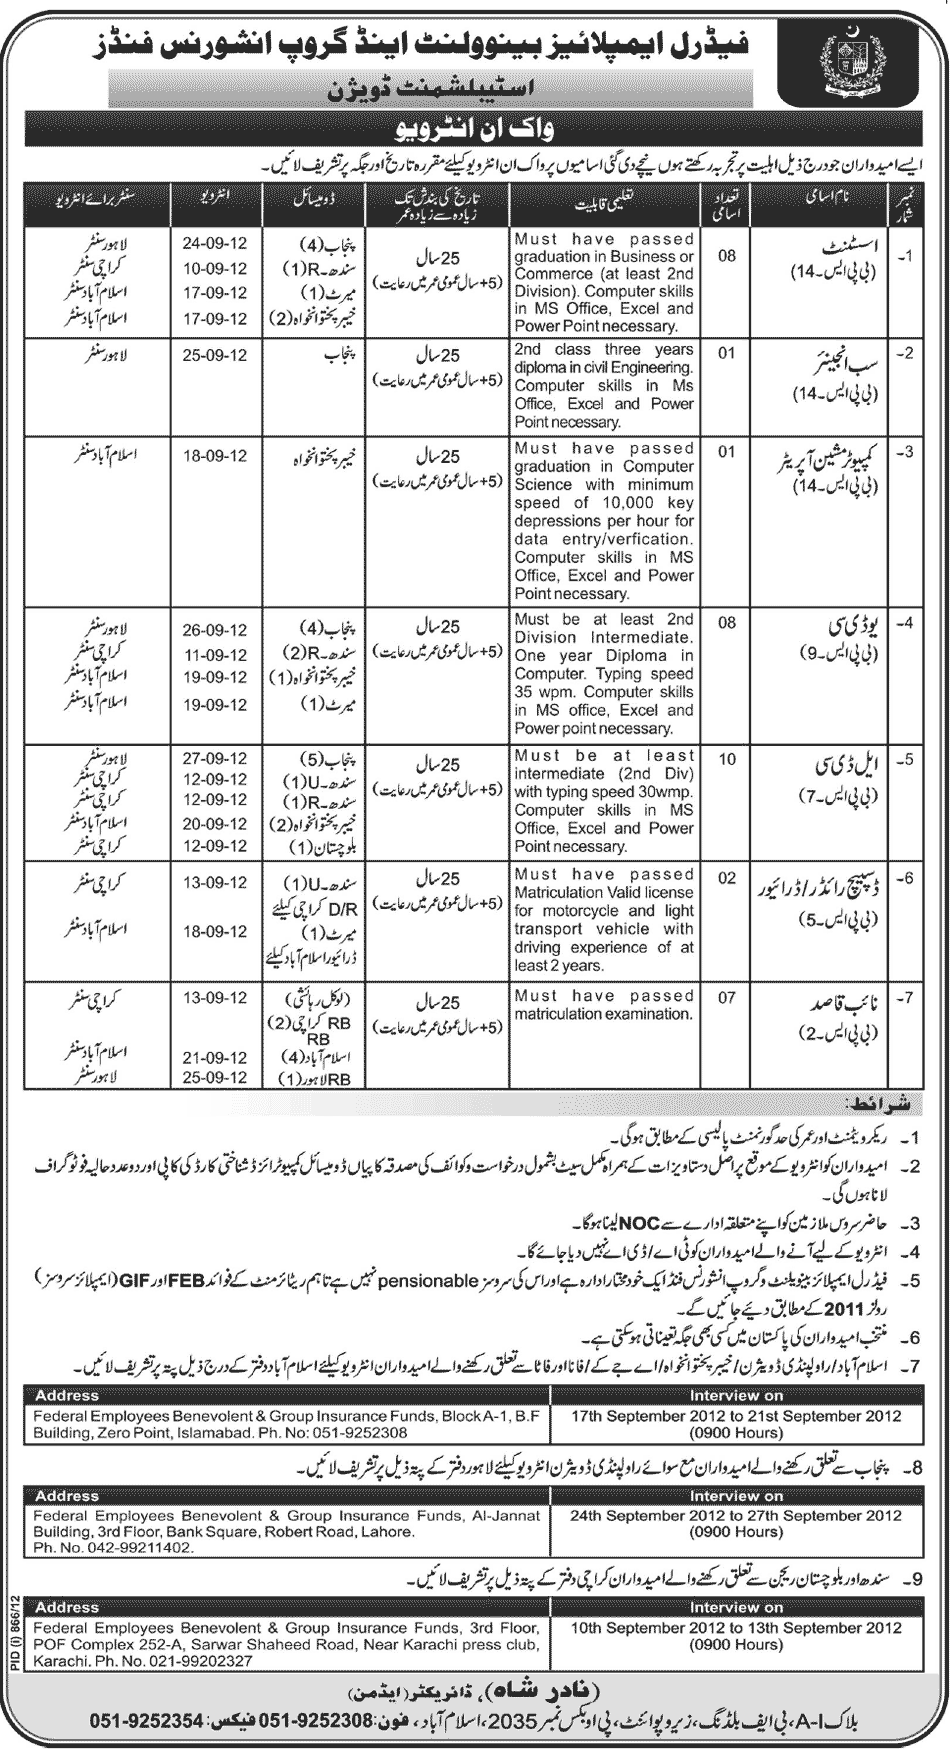 فیڈرل ایمپلائیز بینوولنٹ اینڈ گروپ انشورنس فنڈز
اسٹیبلشمنٹ ڈویژن
واک ان انٹرویو
ایسے امیدواران جو درج ذیل اہلیت پر تجربہ رکھتے ہوں نیچے دی گئی اسامیوں پر واک ان انٹرویو کیلئے مقررہ تاریخ اور جگہ پر تشریف لائیں۔
نمبر شمار	نام اسامی	تعداد اسامی	تعلیمی قابلیت	تاریخ کی بندش تک زیادہ سے زیادہ عمر	ڈومیسائل	انٹرویو	سنٹر برائے انٹرویو
1۔ اسسٹنٹ (بی پی ایس۔14)
08
Must have passed
graduation in Business or
Commerce (at least 2nd
Division). Computer skills
in MS Office, Excel and
Power Point necessary.
25 سال
(5+ سال عمومی عمر میں رعایت)
پنجاب (4) 24-09-12 لاہور سنٹر
سندھ۔R (1) 10-09-12 کراچی سنٹر
میرٹ (1) 17-09-12 اسلام آباد سنٹر
خیبر پختونخواہ (2) 17-09-12 اسلام آباد سنٹر
2۔ سب انجینئر (بی پی ایس۔14)
01
2nd class three years
diploma in civil Engineering.
Computer skills in Ms
Office, Excel and Power
Point necessary.
25 سال
(5+ سال عمومی عمر میں رعایت)
پنجاب 25-09-12 لاہور سنٹر
3۔ کمپیوٹر مشین آپریٹر (بی پی ایس۔14)
01
Must have passed
graduation in Computer
Science with minimum
speed of 10,000 key
depressions per hour for
data entry/verfication.
Computer skills in MS
Office, Excel and Power
Point necessary.
25 سال
(5+ سال عمومی عمر میں رعایت)
خیبر پختونخواہ 18-09-12 اسلام آباد سنٹر
4۔ یو ڈی سی (بی پی ایس۔9)
08
Must be at least 2nd
Division Intermediate.
One year Diploma in
Computer. Typing speed
35 wpm. Computer skills
in MS office, Excel and
Power point necessary.
25 سال
(5+ سال عمومی عمر میں رعایت)
پنجاب (4) 26-09-12 لاہور سنٹر
سندھ۔R (2) 11-09-12 کراچی سنٹر
خیبر پختونخواہ (1) 19-09-12 اسلام آباد سنٹر
میرٹ (1) 19-09-12 اسلام آباد سنٹر
5۔ ایل ڈی سی (بی پی ایس۔7)
10
Must be at least
intermediate (2nd Div)
with typing speed 30wmp.
Computer skills in MS
Office, Excel and Power
Point necessary.
25 سال
(5+ سال عمومی عمر میں رعایت)
پنجاب (5) 27-09-12 لاہور سنٹر
سندھ۔U (1) 12-09-12 کراچی سنٹر
سندھ۔R (1) 12-09-12 کراچی سنٹر
خیبر پختونخواہ (2) 20-09-12 اسلام آباد سنٹر
بلوچستان (1) 12-09-12 کراچی سنٹر
6۔ ڈسپیچ رائڈر/ ڈرائیور (بی پی ایس۔5)
02
Must have passed
Matriculation Valid license
for motorcycle and light
transport vehicle with
driving experience of at
least 2 years.
25 سال
(5+ سال عمومی عمر میں رعایت)
سندھ۔U (1) 13-09-12 کراچی سنٹر
D/R کراچی کیلئے
میرٹ (1) 18-09-12 اسلام آباد سنٹر
ڈرائیور اسلام آباد کیلئے
7۔ نائب قاصد (بی پی ایس۔2)
07
Must have passed
matriculation examination.
25 سال
(5+ سال عمومی عمر میں رعایت)
(لوکل رہائشی) 13-09-12 کراچی سنٹر
RB کراچی (2)
RB
اسلام آباد (4) 21-09-12 اسلام آباد سنٹر
RB لاہور (1) 25-09-12 لاہور سنٹر
شرائط:
1۔ ریکروٹمنٹ اور عمر کی حد گورنمنٹ پالیسی کے مطابق ہوگی۔
2۔ امیدواران کو انٹرویو کے موقع پر اصل دستاویزات کے ہمراہ مکمل سیٹ بشمول درخواست و کوائف کی مصدقہ کاپیاں ڈومیسائل کمپیوٹرائزڈ شناختی کارڈ کی کاپی اور دو عدد حالیہ فوٹوگراف
لانا ہوں گی۔
3۔ حاضر سروس ملازمین کو اپنے متعلقہ ادارے سے NOC لینا ہوگا۔
4۔ انٹرویو کے لیے آنے والے امیدواران کو ٹی اے/ ڈی اے نہیں دیا جائے گا۔
5۔ فیڈرل ایمپلائز بینوولنٹ و گروپ انشورنس فنڈ ایک خود مختار ادارہ ہے اور اس کی سروسز pensionable نہیں ہے تاہم ریٹائرمنٹ کے فوائد FEB اور GIF (ایمپلائز سروسز)
رولز 2011 کے مطابق دیئے جائیں گے۔
6۔ منتخب امیدواران کی پاکستان میں کسی بھی جگہ تعیناتی ہو سکتی ہے۔
7۔ اسلام آباد/ راولپنڈی ڈویژن/ خیبر پختونخواہ/ اے جے کے/ فانا اور فاٹا سے تعلق رکھنے والے امیدواران انٹرویو کیلئے اسلام آباد دفتر کے درج ذیل پتہ پر تشریف لائیں۔
Address	Interview on
Federal Employees Benevolent & Group Insurance Funds, Block A-1, B.F	17th September 2012 to 21st September 2012
Building, Zero Point, Islamabad. Ph. No: 051-9252308	(0900 Hours)
8۔ پنجاب سے تعلق رکھنے والے امیدواران مع سوائے راولپنڈی ڈویژن انٹرویو کیلئے لاہور دفتر کے پتہ ذیل پر تشریف لائیں۔
Address	Interview on
Federal Employees Benevolent & Group Insurance Funds, Al-Jannat	24th September 2012 to 27th September 2012
Building, 3rd Floor, Bank Square, Robert Road, Lahore.	(0900 Hours)
Ph. No. 042-99211402.
9۔ سندھ اور بلوچستان ریجن سے تعلق رکھنے والے امیدواران کراچی دفتر کے پتہ ذیل پر تشریف لائیں۔
Address	Interview on
Federal Employees Benevolent & Group Insurance Funds, 3rd Floor,	10th September 2012 to 13th September 2012
POF Complex 252-A, Sarwar Shaheed Road, Near Karachi press club,	(0900 Hours)
Karachi. Ph. No. 021-99202327
PID (i) 866/12
(نادر شاہ)، ڈائریکٹر (ایڈمن)
بلاک A-I، بی ایف بلڈنگ، زیرو پوائنٹ، پی او بکس نمبر 2035، اسلام آباد، فون: 051-9252308 فیکس: 051-9252354